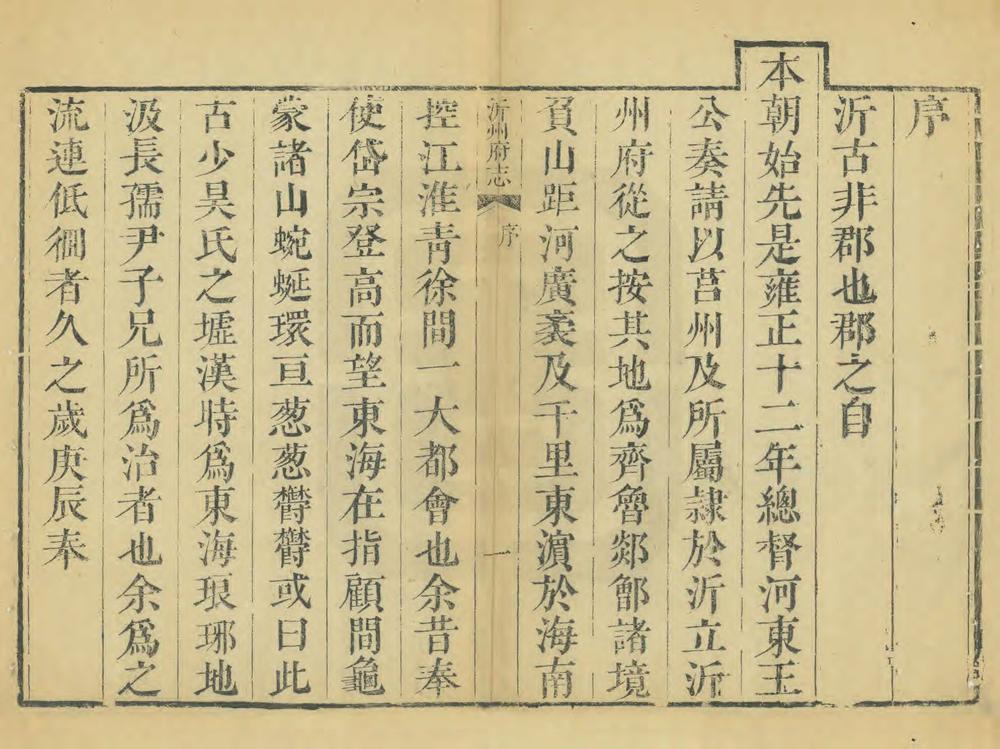 序
沂古非郡也郡之自
本朝始先是雍正十二年總督河東王
公奏請以莒州及所屬隷於沂立沂
州府從之按其地爲齊魯郯鄫諸境
負山距河廣袤及千里東濵於海南
沂州府志 序 一
控江淮靑徐間一大都會也余昔奉
使岱宗登高而望東海在指顧間龜
蒙諸山蜿蜒環亘葱葱欝欝或曰此
古少昊氏之墟漢時爲東海琅琊地
汲長孺尹子兄所爲治者也余爲之
流連低徊者久之歲庚辰奉